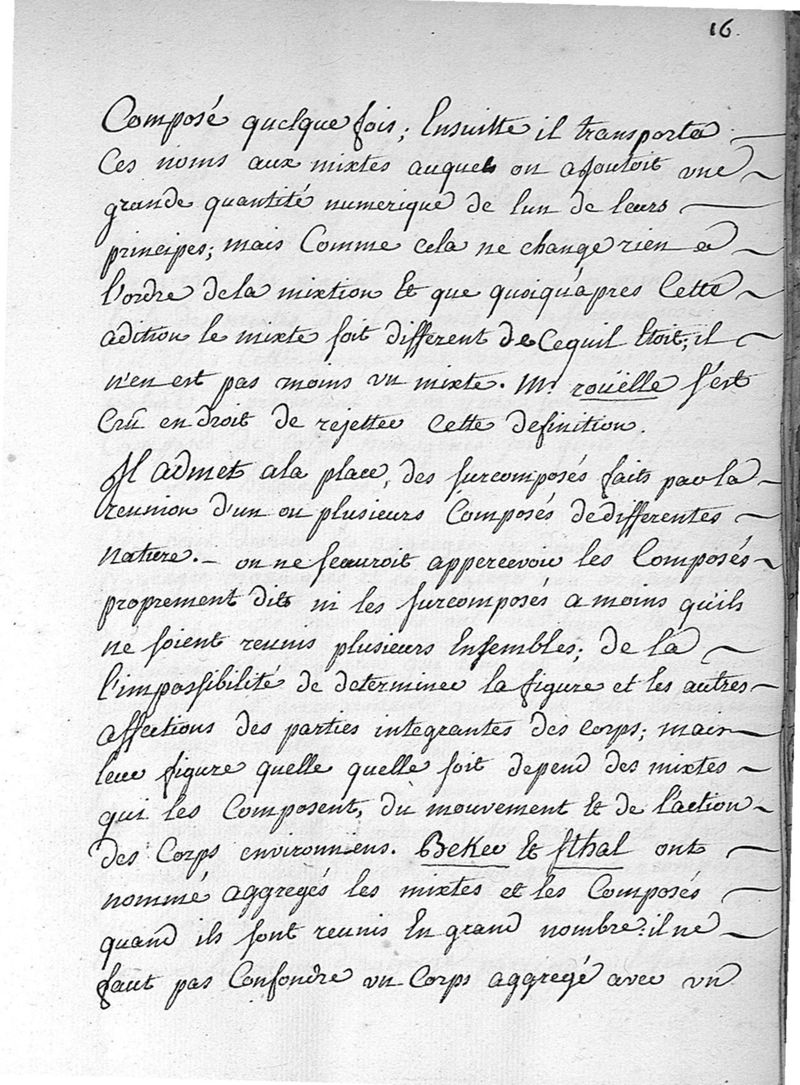 16.
Composé quelque fois; Ensuitte il transporta
Ces noms aux mixtes auquels on ajoutoit une
grande quantité numerique de lun de leurs
principes; mais Comme cela ne change rien a
l'ordre dela mixtion Et que quoiqu'apres Cette
adition le mixte soit different de Cequil Etoit, il
n'en est pas moins un mixte. Mr rouëlle s'est
Crû en droit de rejetter cette definition.
Il admet ala place, des surcomposés faits par la
reunion d'un ou plusieurs Composés dedifferentes
nature. – on ne sçauroit appercevoir les Composés
proprement dits ni les surcomposes a moins qu'ils
ne soient reunis plusieurs Ensembles; de la
l'impossibilité de determiner la figure et les autres
affections des parties integrantes des corps; mais
leur figure quelle quelle soit depend des mixtes
qui les Composent, du mouvement Et de l'action
des Corps environnens. Beker Et Sthal ont
nommé aggregés les mixtes et les Composés
quand ils sont reunis En grand nombre: il ne
faut pas Confondre un Corps aggregé avec un